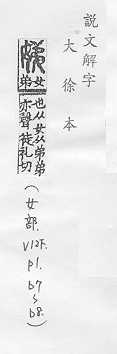 說文解字
大徐本
女
弟
也从女从弟弟
亦聲徒礼切
(女部. V12F. P1. b7~b8.)